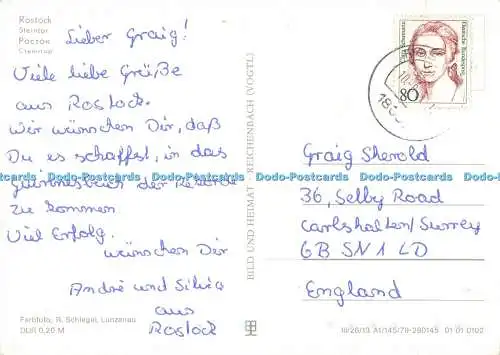 Rostock
Steintor
Росток
Lieber Graig!
Viele liebe Grüße
aus Rostock.
Wir wünschen Dir, daß
Du es schaffst, in das
guinnessbuch der Rekorde
zu kommen.
Viel Erfolg.
wünschen Dir
André und Silvia
aus
Rostock
Farbfoto: R. Schlegel, Lunzenau
DDR 0,20 M
BILD UND HEIMAT · REICHENBACH (VOGTL)
80
Deutsche Bundespost
Graig Sherold
36, Selby Road
Carlshalten/Surrey
GB SN1 LD
England
III/26/13 A1/145/79-280145 01 01 0102
Dodo-Postcards Dodo-Postcards Dodo-Postcards Dodo-Postcards Dodo-Postcards